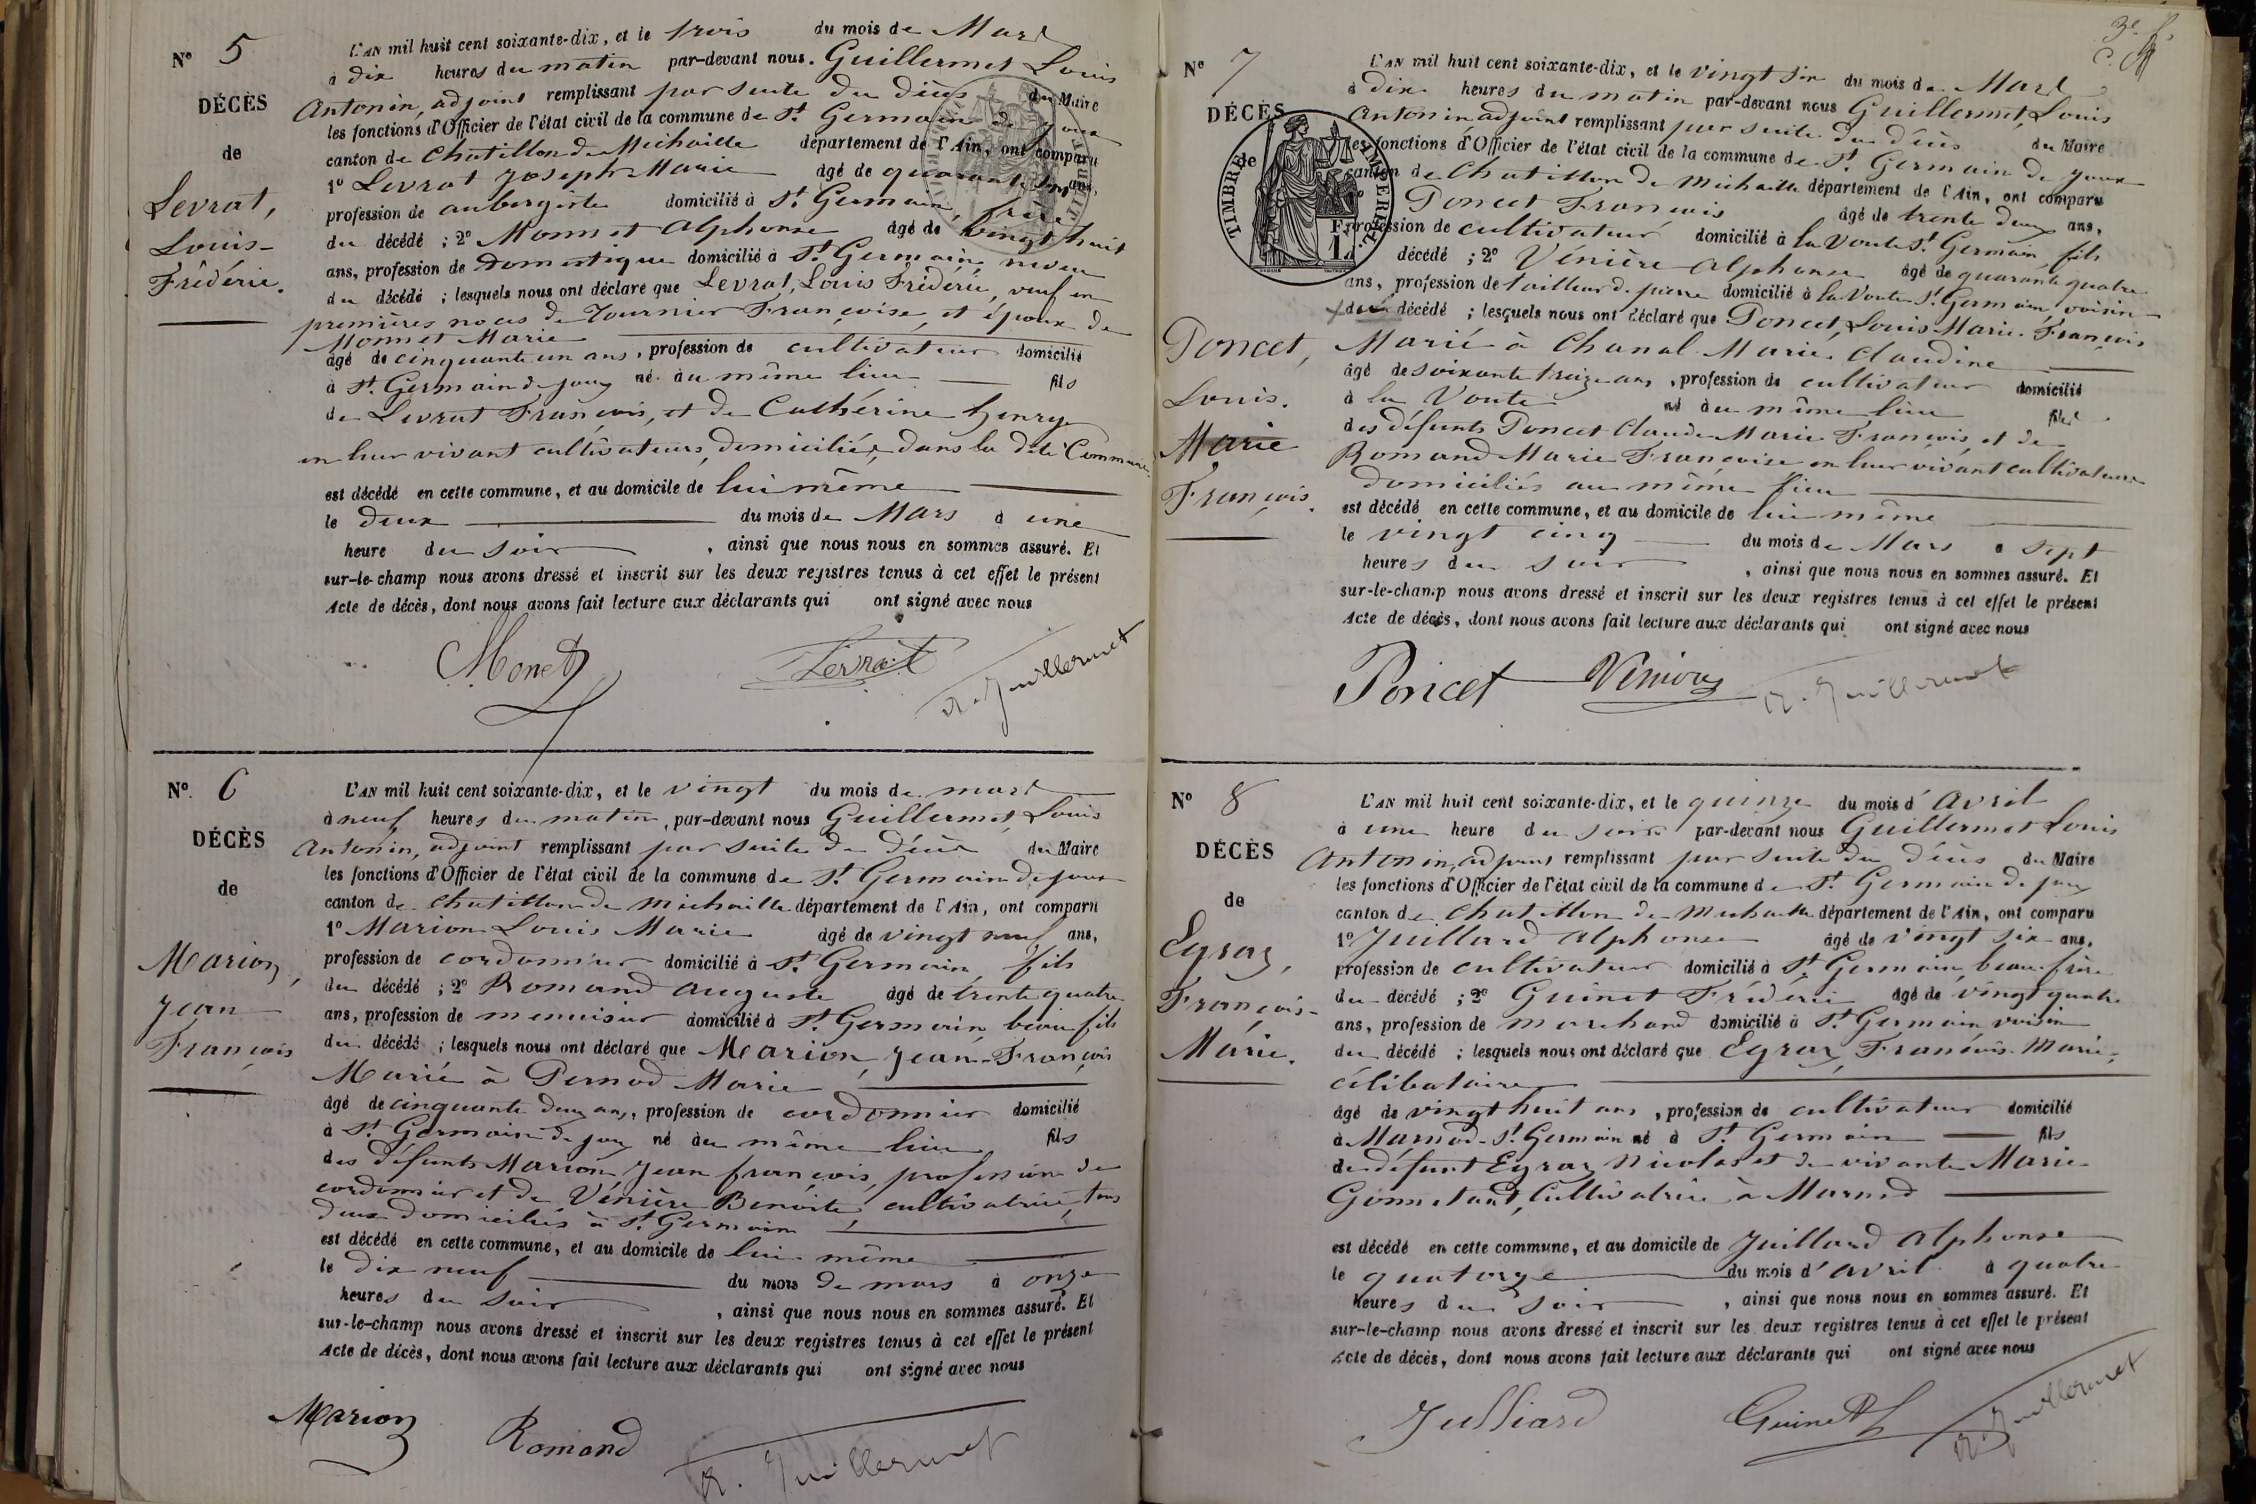 N° 5
DÉCÈS
de
Levrat,
Louis-
Frédéric.
L'AN mil huit cent soixante-dix, et le trois du mois de Mars
à dix heures du matin par-devant nous. Guillermet Louis
Antonin, adjoint remplissant par suite du décès du Maire
les fonctions d'Officier de l'état civil de la commune de St. Germain de Joux
canton de Chatillon de Michaille département de l'Ain, ont comparu
1° Levrat Joseph Marie âgé de quarante ans,
profession de aubergiste domicilié à St. Germain, frère
du décédé ; 2° Monnet Alphonse âgé de vingt huit
ans, profession de domestique domicilié à St. Germain neveu
du décédé ; lesquels nous ont déclaré que Levrat, Louis Frédéric, veuf en
premières noces de Tournier Françoise, et époux de
Monnet Marie
âgé de cinquante un ans, profession de cultivateur domicilié
à St. Germain de joux né au même lieu fils
de Levrat François, et de Cathérine henry
en leur vivant cultivateurs, domiciliés, dans la dite Commune
est décédé en cette commune, et au domicile de lui même
le deux du mois de Mars à une
heure du soir, ainsi que nous nous en sommes assuré. Et
sur-le-champ nous avons dressé et inscrit sur les deux registres tenus à cet effet le présent
Acte de décès, dont nous avons fait lecture aux déclarants qui ont signé avec nous
Monet Levrat A. Guillermet
N° 6
DÉCÈS
de
Marion,
Jean
François
L'AN mil huit cent soixante-dix, et le vingt du mois de mars
à neuf heures du matin, par-devant nous Guillermet, Louis
Antonin, adjoint remplissant par suite du décès du Maire
les fonctions d'Officier de l'état civil de la commune de St. Germain de joux
canton de Chatillon de Michaille département de l'Ain, ont comparu
1° Marion Louis Marie âgé de vingt neuf ans,
profession de cordonnier domicilié à St. Germain, fils
du décédé ; 2° Romand Auguste âgé de trente quatre
ans, profession de menuisier domicilié à St. Germain, beau fils
du décédé ; lesquels nous ont déclaré que Marion, Jean-François
Marié à Pernod Marie
âgé de cinquante deux ans, profession de cordonnier domicilié
à St. Germain de joux né au même lieu fils
des défunts Marion Jean françois, profession de
cordonnier et de Vénière Benoite, cultivatrice, tous
deux domiciliés à St. Germain
est décédé en cette commune, et au domicile de lui même
le dix neuf du mois de mars à onze
heures du soir, ainsi que nous nous en sommes assuré. Et
sur-le-champ nous avons dressé et inscrit sur les deux registres tenus à cet effet le présent
Acte de décès, dont nous avons fait lecture aux déclarants qui ont signé avec nous
Marion Romand A. Guillermet
N° 7
DÉCÈS
de
TIMBRE IMPERIAL
Poncet,
Louis.
Marie
François.
L'AN mil huit cent soixante-dix, et le vingt six du mois de Mars
à dix heures du matin par-devant nous Guillermet, Louis
Antonin adjoint remplissant par suite du décès du Maire
les fonctions d'Officier de l'état civil de la commune de St. Germain de joux
canton de Chatillon de Michaille département de l'Ain, ont comparu
Poncet François âgé de trente deux ans,
profession de cultivateur domicilié à la Voute St. Germain, fils
décédé ; 2° Vénière Alphonse âgé de quarante quatre
ans, profession de tailleur de pierre domicilié à la Voute St. Germain, voisin
du décédé ; lesquels nous ont déclaré que Poncet, Louis Marie François
Marié à Chanal Marie Claudine
âgé de soixante treize ans, profession de cultivateur domicilié
à la Voute né au même lieu fils
des défunts Poncet Claude Marie François, et de
Romand Marie Françoise en leur vivant cultivateurs
domiciliés au même lieu
est décédé en cette commune, et au domicile de lui même
le vingt cinq du mois de Mars à sept
heures du soir, ainsi que nous nous en sommes assuré. Et
sur-le-champ nous avons dressé et inscrit sur les deux registres tenus à cet effet le présent
Acte de décès, dont nous avons fait lecture aux déclarants qui ont signé avec nous
Poncet A. Guillermet
N° 8
DÉCÈS
de
Eyraz,
François-
Marie.
L'AN mil huit cent soixante-dix, et le quinze du mois d'Avril
à une heure du soir par-devant nous Guillermet Louis
Antonin, adjoint remplissant par suite du décès du Maire
les fonctions d'Officier de l'état civil de la commune de St. Germain de joux
canton de Chatillon de Michaille département de l'Ain, ont comparu
1° Juilliard Alphonse âgé de vingt six ans,
profession de cultivateur domicilié à St. Germain, beau frère
du décédé ; 2° Guinet Frédéric âgé de vingt quatre
ans, profession de marchand domicilié à St. Germain voisin
du décédé ; lesquels nous ont déclaré que Eyraz, François-Marie,
célibataire
âgé de vingt huit ans, profession de cultivateur domicilié
à Marnod-St. Germain né à St. Germain fils
de défunt Eyraz Nicolas et de vivante Marie
Gonnetant, Cultivatrice à Marnod
est décédé en cette commune, et au domicile de Juilliard Alphonse
le quatorze du mois d'avril à quatre
heures du soir, ainsi que nous nous en sommes assuré. Et
sur-le-champ nous avons dressé et inscrit sur les deux registres tenus à cet effet le présent
Acte de décès, dont nous avons fait lecture aux déclarants qui ont signé avec nous
Julliard Guinet A. Guillermet